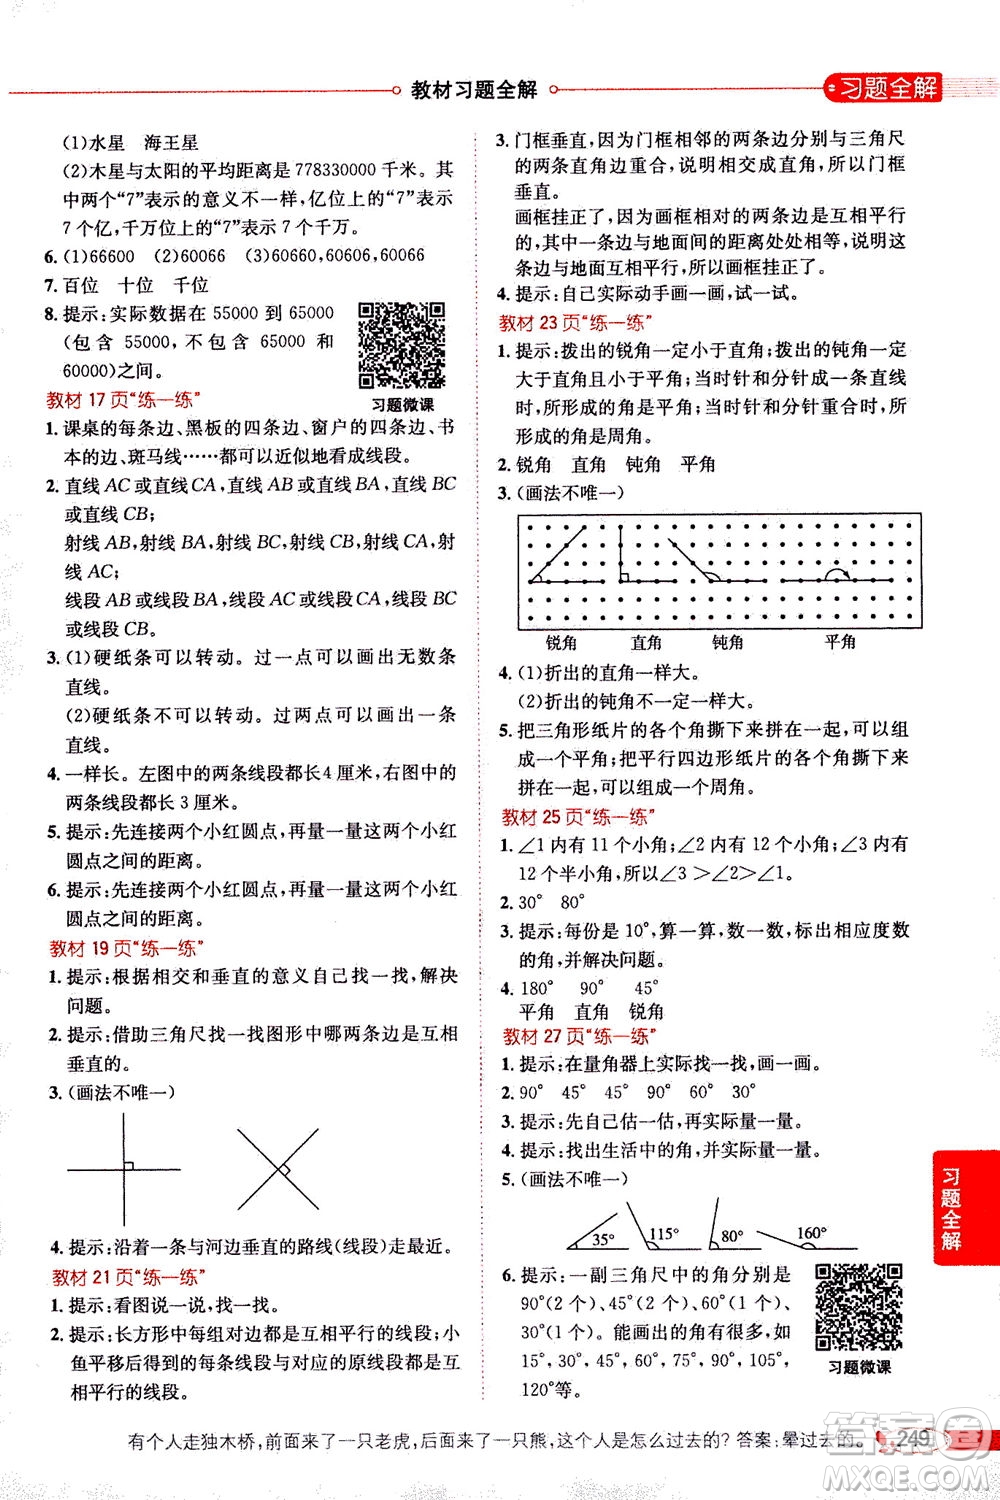 教材习题全解
习题全解
(1)水星 海王星
(2)木星与太阳的平均距离是 778330000 千米。其
中两个“7”表示的意义不一样,亿位上的“7”表示
7 个亿,千万位上的“7”表示 7 个千万。
6. (1)66600 (2)60066 (3)60660,60606,60066
7. 百位 十位 千位
8. 提示:实际数据在 55000 到 65000
(包含 55000,不包含 65000 和
60000)之间。
习题微课
教材 17 页“练一练”
1. 课桌的每条边、黑板的四条边、窗户的四条边、
书本的边、斑马线……都可以近似地看成线段。
2. 直线 AC 或直线 CA,直线 AB 或直线 BA,直线 BC
或直线 CB;
射线 AB,射线 BA,射线 BC,射线 CB,射线 CA,射
线 AC;
线段 AB 或线段 BA,线段 AC 或线段 CA,线段 BC
或线段 CB。
3. (1)硬纸条可以转动。过一点可以画出无数条
直线。
(2)硬纸条不可以转动。过两点可以画出一条
直线。
4. 一样长。左图中的两条线段都长4 厘米,右图中的
两条线段都长 3 厘米。
5. 提示:先连接两个小红圆点,再量一量这两个小红
圆点之间的距离。
6. 提示:先连接两个小红圆点,再量一量这两个小红
圆点之间的距离。
教材 19 页“练一练”
1. 提示:根据相交和垂直的意义自己找一找,解决
问题。
2. 提示:借助三角尺找一找图形中哪两条边是互相
垂直的。
3. (画法不唯一)
4. 提示:沿着一条与河边垂直的路线(线段)走最近。
教材 21 页“练一练”
1. 提示:看图说一说,找一找。
2. 提示:长方形中每组对边都是互相平行的线段,小
鱼平移后得到的每条线段与对应的原线段都是互
相平行的线段。
3. 门框垂直,因为门框相邻的两条边分别与三角尺
的两条直角边重合,说明相交成直角,所以门框
垂直。
画框挂正了,因为画框相对的两条边是互相平行
的,其中一条边与地面间的距离处处相等,说明这
条边与地面互相平行,所以画框挂正了。
4. 提示:自己实际动手画一画,试一试。
教材 23 页“练一练”
1. 提示:拨出的锐角一定小于直角;拨出的钝角一定
大于直角且小于平角;当时针和分针成一条直线
时,所形成的角是平角;当时针和分针重合时,所
形成的角是周角。
2. 锐角 直角 钝角 平角
3. (画法不唯一)
锐角 直角 钝角 平角
4. (1)折出的直角一样大。
(2)折出的钝角不一定一样大。
5. 把三角形纸片的各个角撕下来拼在一起,可以组
成一个平角;把平行四边形纸片的各个角撕下来
拼在一起,可以组成一个周角。
教材 25 页“练一练”
1. ∠1 内有 11 个小角;∠2 内有 12 个小角;∠3 内有
12 个半小角,所以∠3＞∠2＞∠1。
2. 30° 80°
3. 提示:每份是 10°,算一算,数一数,标出相应度数
的角,并解决问题。
4. 180° 90° 45°
平角 直角 锐角
教材 27 页“练一练”
1. 提示:在量角器上实际找一找,画一画。
2. 90° 45° 45° 90° 60° 30°
3. 提示:先自己估一估,再实际量一量。
4. 提示:找出生活中的角,并实际量一量。
5. (画法不唯一)
35° 115° 80° 160°
6. 提示:一副三角尺中的角分别是
90°(2 个)、45°(2 个)、60°(1 个)、
30°(1 个)。能画出的角有很多,如
15°,30°,45°,60°,75°,90°,105°,
120°等。
习题微课
习题全解
有个人走独木桥,前面来了一只老虎,后面来了一只熊,这个人是怎么过去的? 答案:晕过去的。
249
答案圈
MXQE.COM